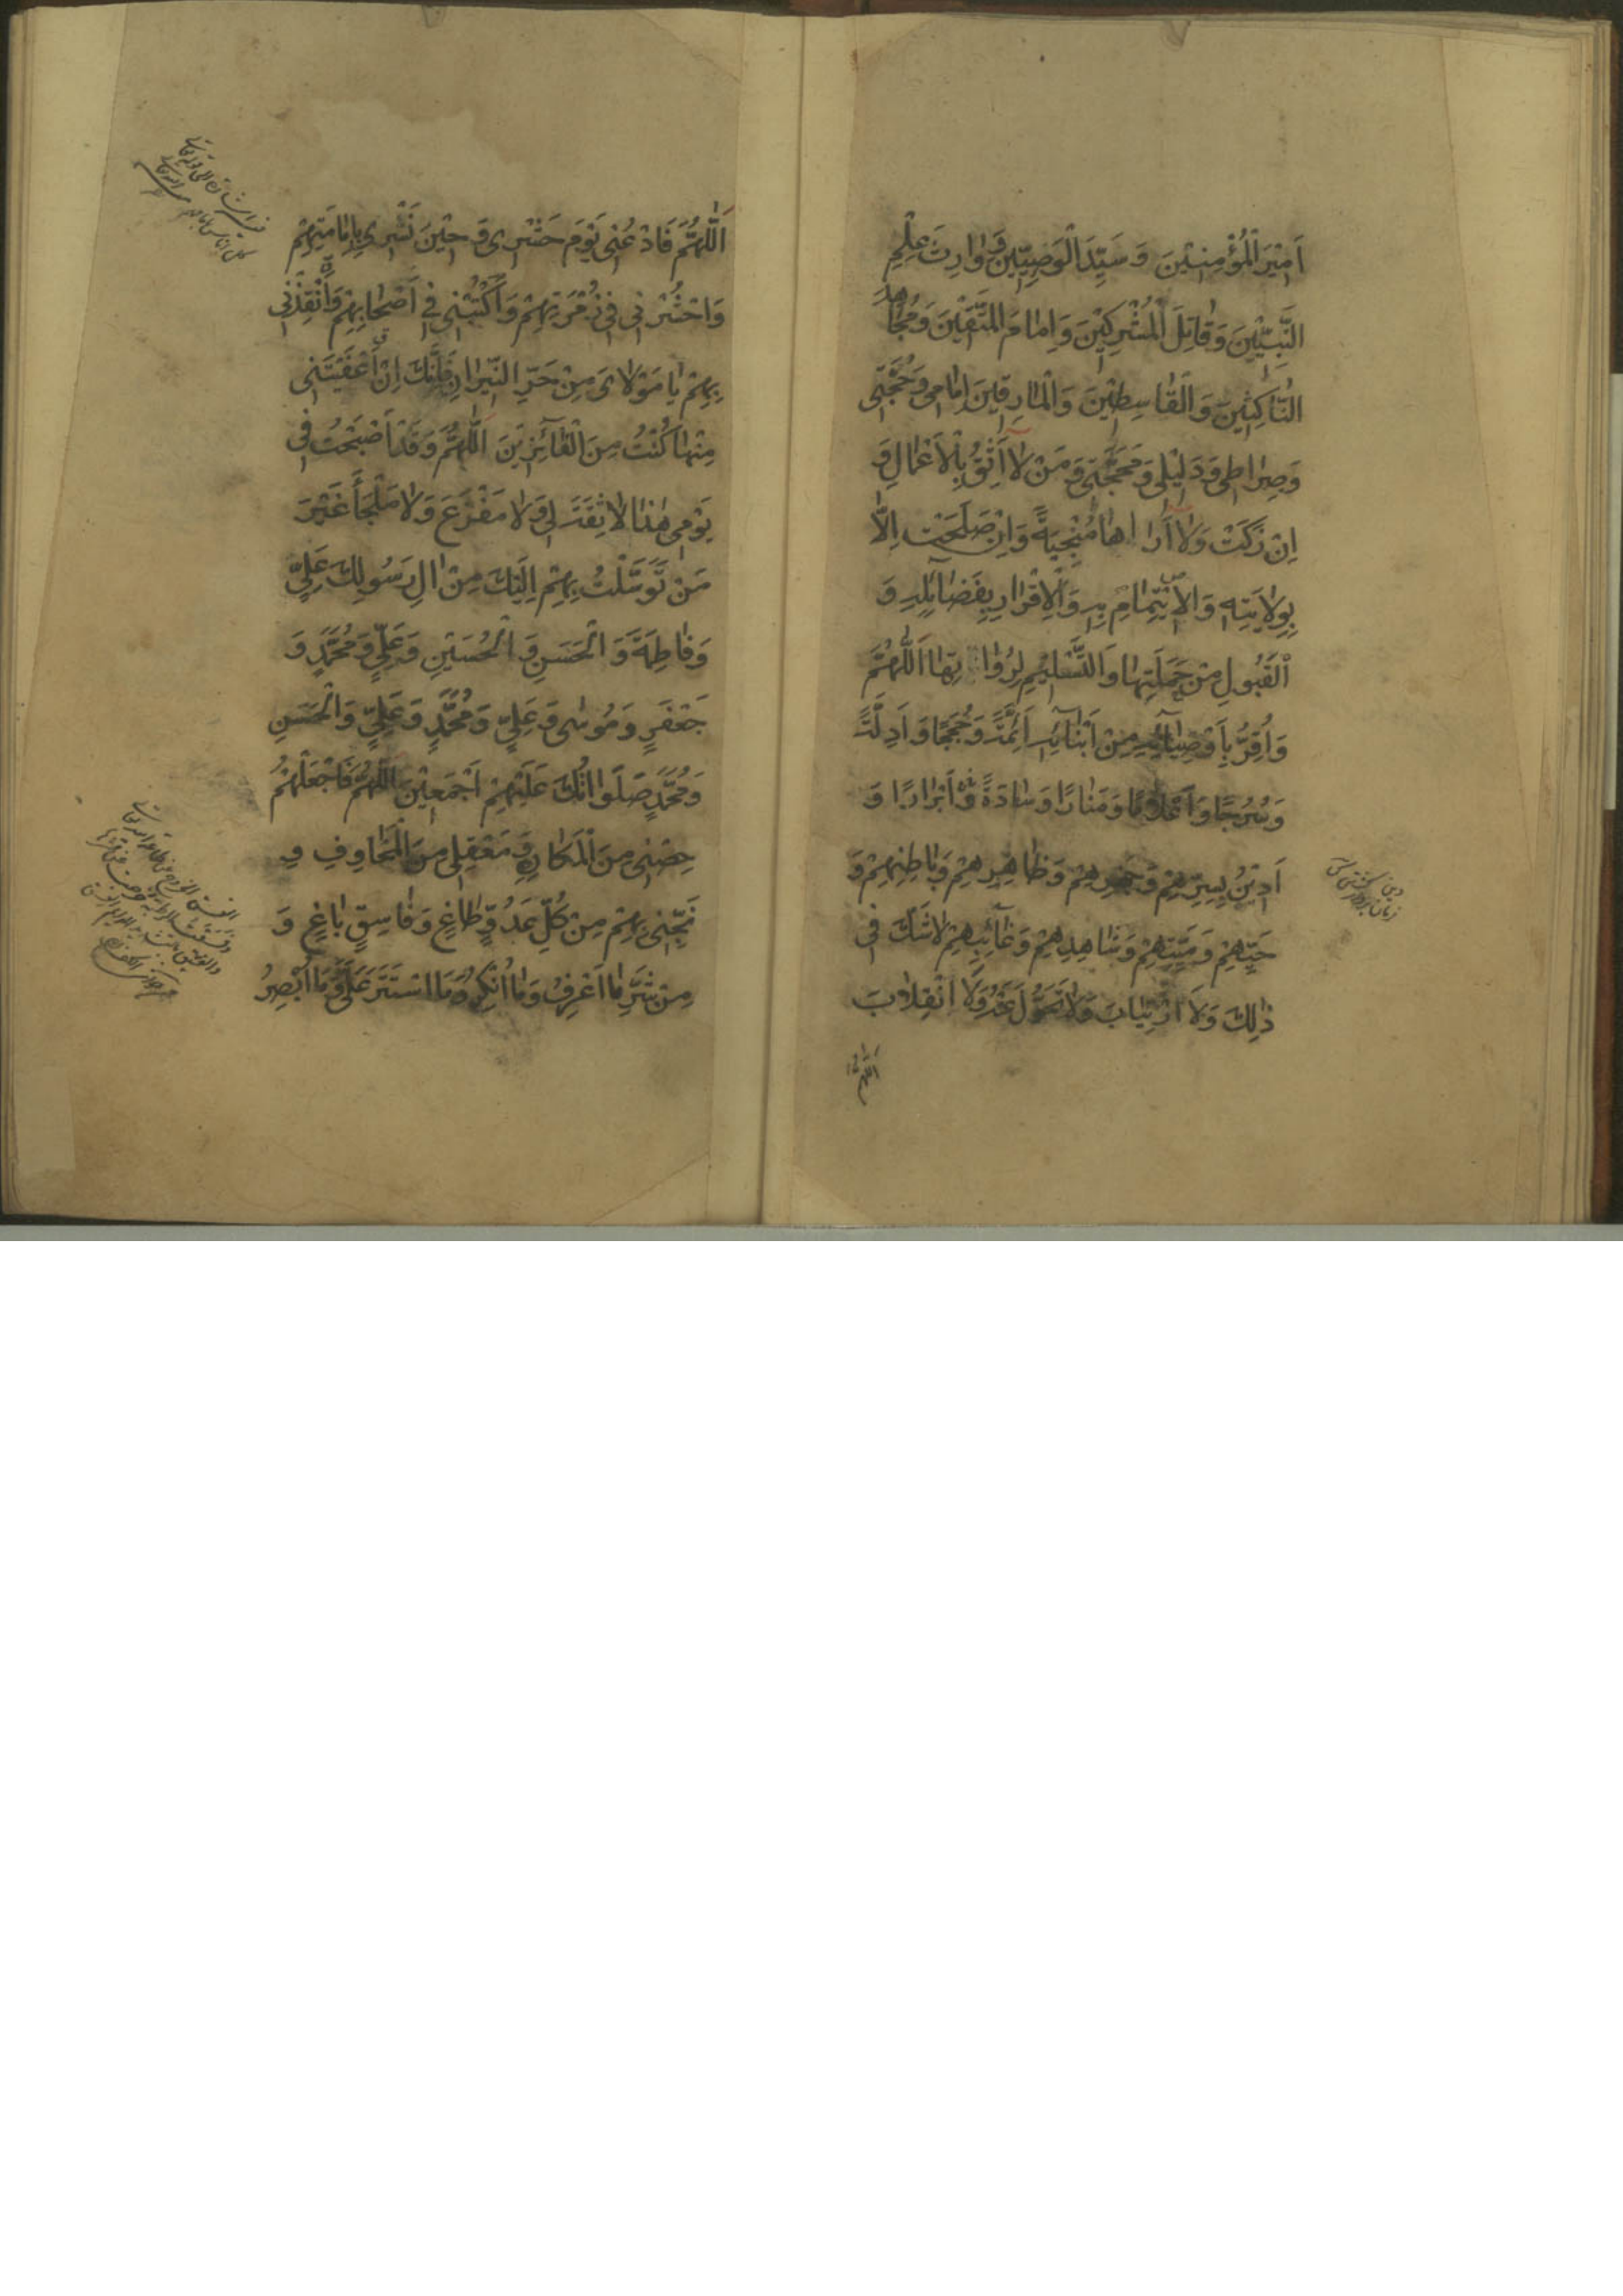 اَمِيْرَ الْمُؤْمِنِيْنَ وَ سَيِّدَ الْوَصِيِّيْنَ وَ وَارِثَ عِلْمِ
النَّبِيِّيْنَ وَ قَاتِلَ الْمُشْرِكِيْنَ وَ اِمَامَ الْمُتَّقِيْنَ وَ مُجَاهِدَ
النَّاكِثِيْنَ وَ الْقَاسِطِيْنَ وَ الْمَارِقِيْنَ اِمَامِى وَ حُجَّتِى
وَ صِرَاطِى وَ دَلِيْلِى وَ مَحَجَّتِى وَ مَنْ لَا اَثِقُ بِالْاَعْمَالِ وَ
اِنْ زَكَتْ وَ لَا اَرَاهَا مُنْجِيَةً وَ اِنْ صَلَحَتْ اِلَّا
بِوِلَايَتِهِ وَ الْاِئْتِمَامِ بِهِ وَ الْاِقْرَارِ بِفَضَائِلِهِ وَ
الْقَبُولِ مِنْ حَمَلَتِهَا وَ التَّسْلِيْمِ لِرُوَاتِهَا اَللّٰهُمَّ
وَ اُقِرُّ بِاَوْصِيَائِهِ مِنْ اَبْنَائِهِ اَئِمَّةً وَ حُجَجًا وَ اَدِلَّةً
وَ سُرُجًا وَ اَعْلَامًا وَ مَنَارًا وَ سَادَةً وَ اَبْرَارًا وَ
اَدِيْنُ بِسِرِّهِمْ وَ جَهْرِهِمْ وَ ظَاهِرِهِمْ وَ بَاطِنِهِمْ وَ
حَيِّهِمْ وَ مَيِّتِهِمْ وَ شَاهِدِهِمْ وَ غَائِبِهِمْ لَا شَكَّ فِى
ذٰلِكَ وَ لَا ارْتِيَابَ وَ لَا تَحَوُّلَ عَنْهُ وَ لَا انْقِلَابَ
اَللّٰهُمَّ
اَللّٰهُمَّ فَادْعُنِى يَوْمَ حَشْرِى وَ حِيْنَ نَشْرِى بِاِمَامَتِهِمْ
وَ احْشُرْنِى فِى زُمْرَتِهِمْ وَ اكْتُبْنِى فِى اَصْحَابِهِمْ وَ اَنْقِذْنِى
بِهِمْ يَا مَوْلَاىَ مِنْ حَرِّ النِّيْرَانِ فَاِنَّكَ اِنْ اَعْفَيْتَنِى
مِنْهَا كُنْتُ مِنَ الْفَائِزِيْنَ اَللّٰهُمَّ وَ قَدْ اَصْبَحْتُ فِى
يَوْمِى هٰذَا لَا ثِقَةَ لِى وَ لَا مَفْزَعَ وَ لَا مَلْجَأَ غَيْرَ
مَنْ تَوَسَّلْتُ بِهِمْ اِلَيْكَ مِنْ اٰلِ رَسُولِكَ عَلِيٍّ
وَ فَاطِمَةَ وَ الْحَسَنِ وَ الْحُسَيْنِ وَ عَلِيٍّ وَ مُحَمَّدٍ وَ
جَعْفَرٍ وَ مُوسٰى وَ عَلِيٍّ وَ مُحَمَّدٍ وَ عَلِيٍّ وَ الْحَسَنِ
وَ مُحَمَّدٍ صَلَوَاتُكَ عَلَيْهِمْ اَجْمَعِيْنَ اَللّٰهُمَّ فَاجْعَلْهُمْ
حِصْنِى مِنَ الْمَكَارِهِ وَ مَعْقِلِى مِنَ الْمَخَاوِفِ وَ
نَجِّنِى بِهِمْ مِنْ كُلِّ عَدُوٍّ طَاغٍ وَ فَاسِقٍ بَاغٍ وَ
مِنْ شَرِّ مَا اَعْرِفُ وَ مَا اُنْكِرُ وَ مَا اسْتَتَرَ عَلَىَّ وَ مَا اُبْصِرُ